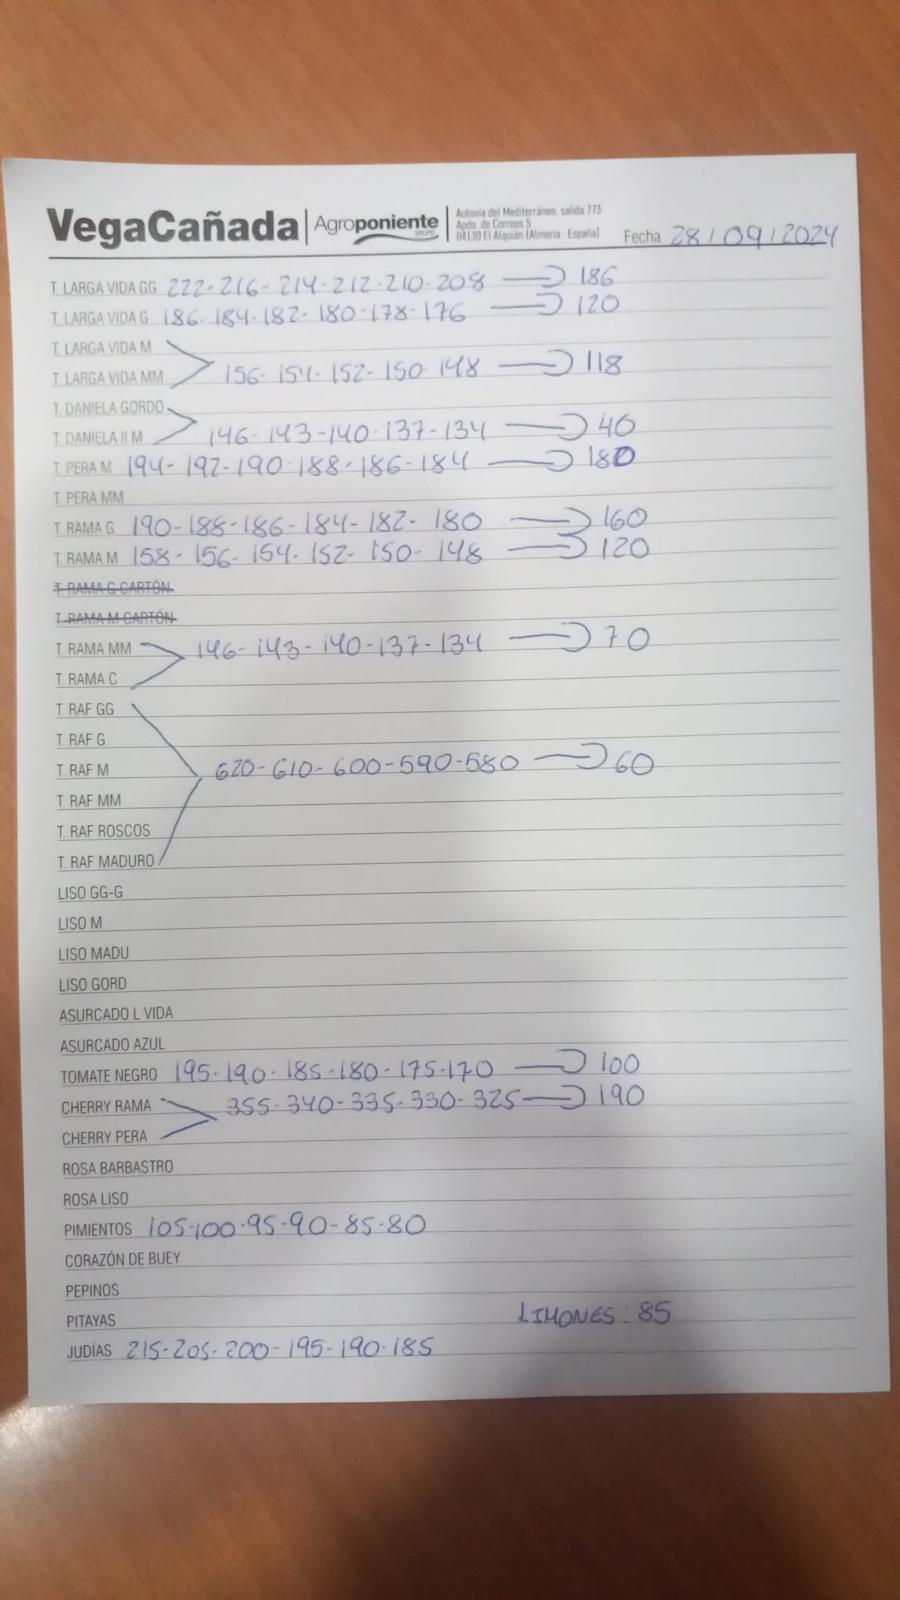 VegaCañada Agroponiente GRUPO
Autovía del Mediterráneo, salida 773
Apdo. de Correos 5
04130 El Alquián (Almería España)
Fecha 28/09/2024
T. LARGA VIDA GG 222-216-214-212-210-208 → 186
T. LARGA VIDA G 186-184-182-180-178-176 → 120
T. LARGA VIDA M
T. LARGA VIDA MM 156-154-152-150-148 → 118
T. DANIELA GORDO
T. DANIELA II M 146-143-140-137-134 → 40
T. PERA M 194-192-190-188-186-184 → 180
T. PERA MM
T. RAMA G 190-188-186-184-182-180 → 160
T. RAMA M 158-156-154-152-150-148 → 120
T. RAMA G CARTÓN
T. RAMA M CARTÓN
T. RAMA MM 146-143-140-137-134 → 70
T. RAMA C
T. RAF GG
T. RAF G
T. RAF M 620-610-600-590-580 → 60
T. RAF MM
T. RAF ROSCOS
T. RAF MADURO
LISO GG-G
LISO M
LISO MADU
LISO GORD
ASURCADO L VIDA
ASURCADO AZUL
TOMATE NEGRO 195-190-185-180-175-170 → 100
CHERRY RAMA 355-340-335-330-325 → 190
CHERRY PERA
ROSA BARBASTRO
ROSA LISO
PIMIENTOS 105-100-95-90-85-80
CORAZÓN DE BUEY
PEPINOS
PITAYAS LIMONES: 85
JUDÍAS 215-205-200-195-190-185